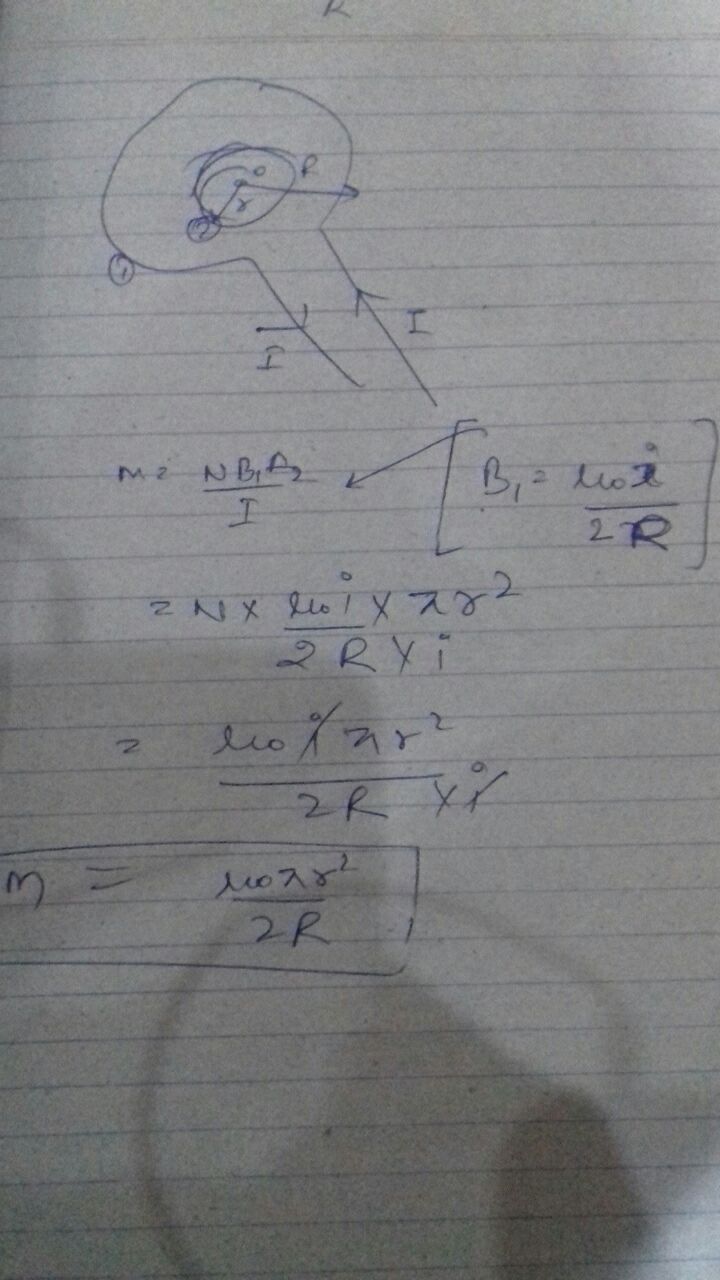 R
o
R
r
2
1
I
I
M = NB₁A₂ / I [ B₁ = μ₀i / 2R ]
= N × μ₀i × πr² / 2R × i
= μ₀i πr² / 2R × i
M = μ₀πr² / 2R